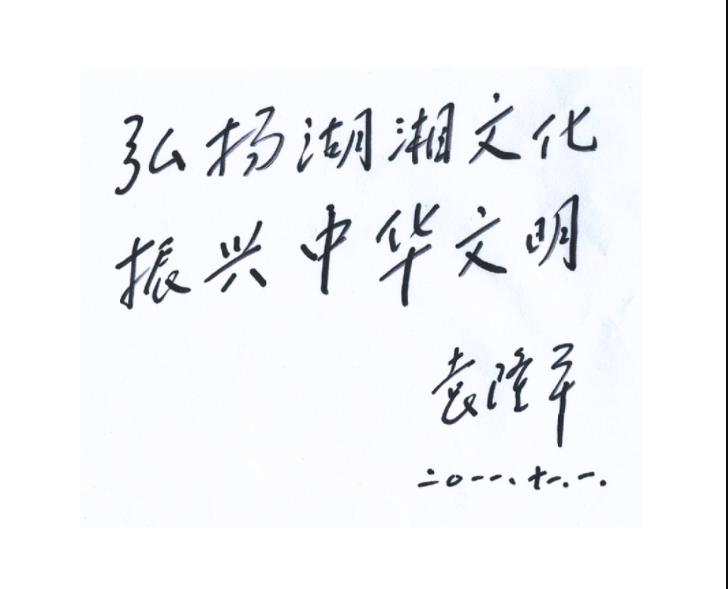 弘扬湖湘文化
振兴中华文明
袁隆平
二〇一一.十一.一.